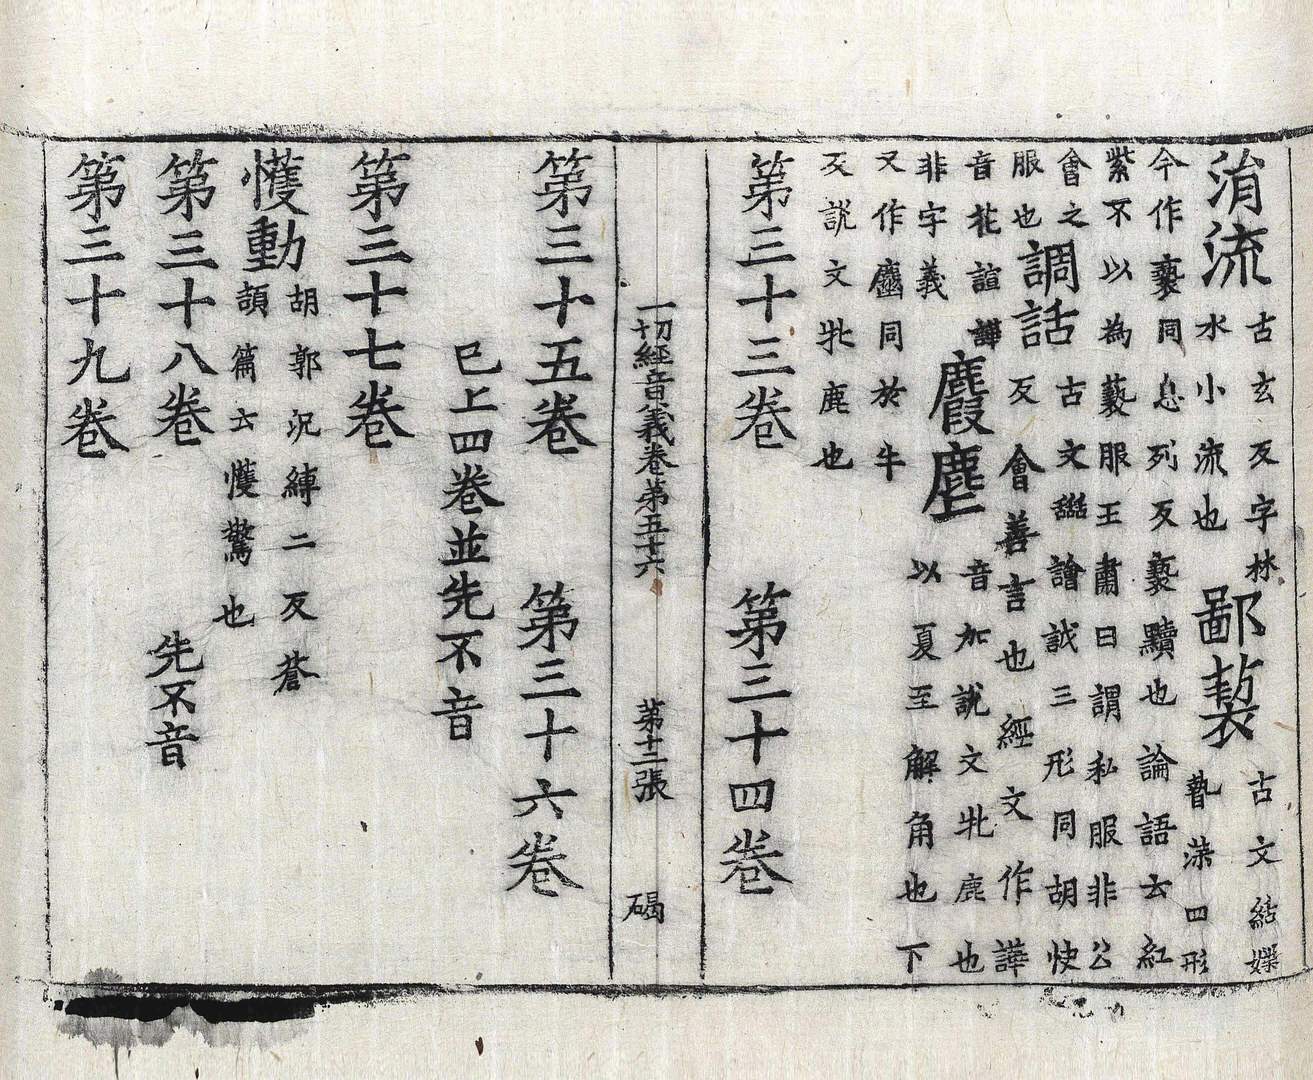 涓流古玄反字林
水小流也鄙褻古文結媟
暬渫四形
今作褻同息列反褻黷也論語云紅
紫不以為褻服王肅曰謂私服非公
會之
服也調話古文譮誠三形同胡快
反會善言也經文作譁
音花諠譁
非字義麚麈音加說文牝鹿也
以夏至解角也下
又作同於牛
反說文牝鹿也
第三十三卷 第三十四卷
一切經音義卷第五十六 第十二張 碣
第三十五卷 第三十六卷
已上四卷並先不音
第三十七卷
戄動胡郭況縛二反蒼
頡篇云戄驚也
第三十八卷 先不音
第三十九卷